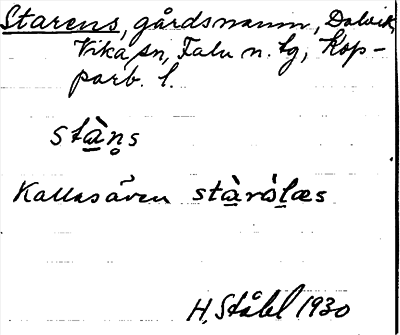 Starens, gårdsnamn, Dalvik,
Vika sn, Falu n. tg, Kop-
parb. l.
stà̱n̥s
Kallas även stàrəlæs
H. Ståhl 1930